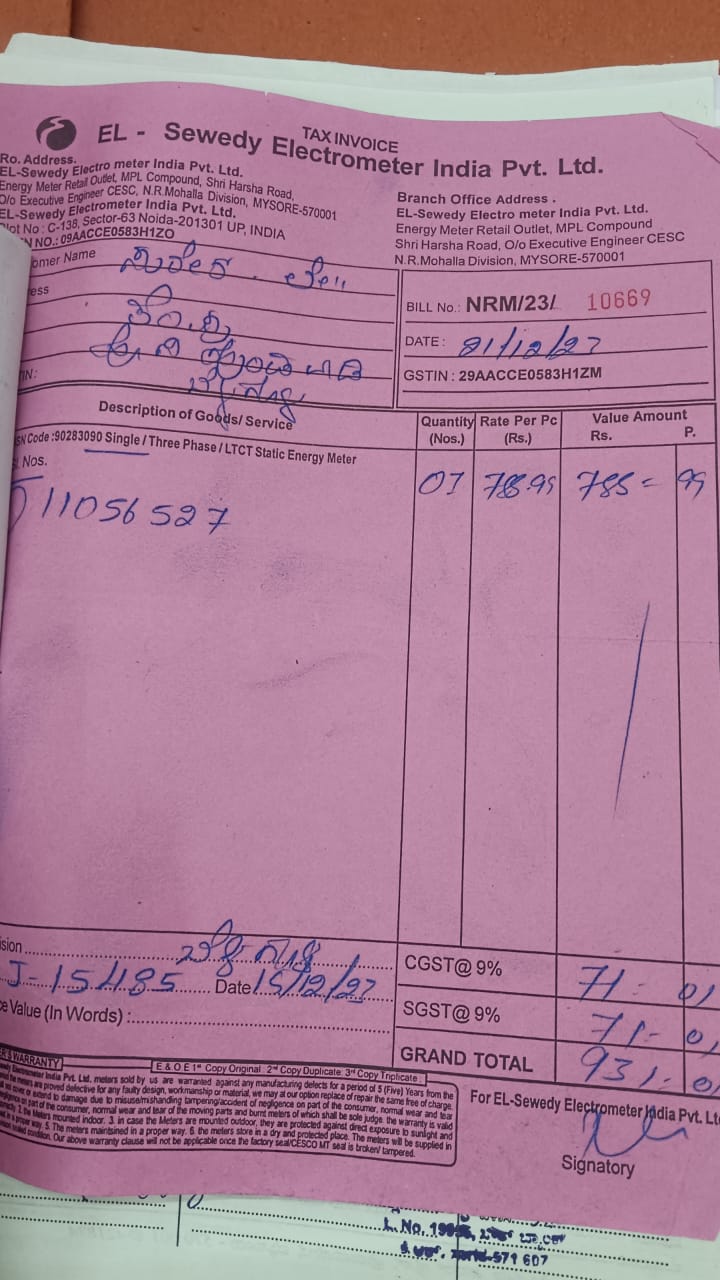 TAX INVOICE
EL - Sewedy Electrometer India Pvt. Ltd.
Ro. Address.
EL-Sewedy Electro meter India Pvt. Ltd.
Energy Meter Retail Outlet, MPL Compound, Shri Harsha Road,
O/o Executive Engineer CESC, N.R.Mohalla Division, MYSORE-570001
EL-Sewedy Electrometer India Pvt. Ltd.
Plot No : C-138, Sector-63 Noida-201301 UP, INDIA
N NO.: 09AACCE0583H1ZO
Branch Office Address .
EL-Sewedy Electro meter India Pvt. Ltd.
Energy Meter Retail Outlet, MPL Compound
Shri Harsha Road, O/o Executive Engineer CESC
N.R.Mohalla Division, MYSORE-570001
omer Name
ess
IN:
BILL No.: NRM/23/ 10669
DATE : 21/12/23
GSTIN : 29AACCE0583H1ZM
Description of Goods/ Service
Quantity (Nos.)
Rate Per Pc (Rs.)
Value Amount
Rs. P.
SN Code :90283090 Single / Three Phase / LTCT Static Energy Meter
Nos.
11056527
01 789.99 789 = 99
sion
J-15485 Date 15/12/23
ce Value (In Words) :
CGST@ 9% 71- 01
SGST@ 9% 71- 01
GRAND TOTAL 931-
E & O E 1st Copy Original : 2nd Copy Duplicate: 3rd Copy Triplicate
R'S WARRANTY
Electrometer India Pvt. Ltd. meters sold by us are warranted against any manufacturing defects for a period of 5 (Five) Years from the
the meters are proved defective for any faulty design, workmanship or material, we may at our option replace of repair the same free of charge.
extend to damage due to misuse/mishandling tampering/accident of negligence on part of the consumer, normal wear and tear
part of the consumer, normal wear and tear of the moving parts and burnt meters of which shall be sole judge. the warranty is valid
2. the Meters mounted indoor. 3. in case the Meters are mounted outdoor, they are protected against direct exposure to sunlight and
5. The meters maintsined in a proper way. 6. the meters store in a dry and protected place. The meters will be supplied in
condition. Our above warranty clause will not be applicable once the factory seal/CESCO MT seal is broken/ tampered.
For EL-Sewedy Electrometer India Pvt. Lt
Signatory
L. No.
571 607